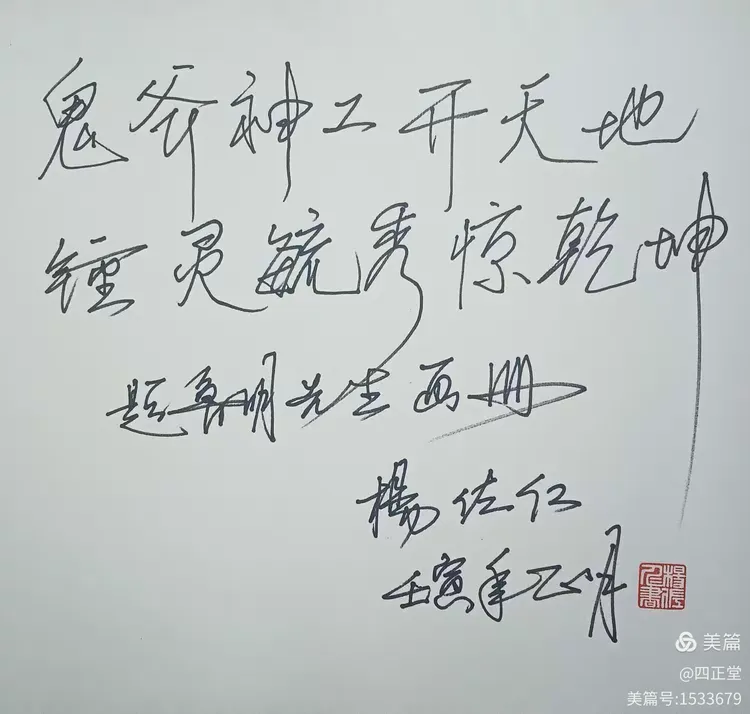 鬼斧神工开天地
锺灵毓秀惊乾坤
题明先生画册
楊佐仁
壬寅年正月
楊佐仁書
美篇
@四正堂
美篇号:1533679